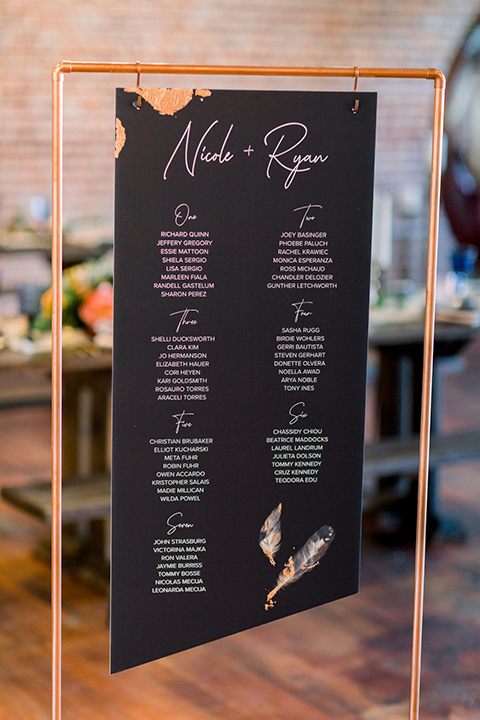 Nicole + Ryan
One
RICHARD QUINN
JEFFERY GREGORY
ESSIE MATTOON
SHIELA SERGIO
LISA SERGIO
MARLEEN FIALA
RANDELL GASTELUM
SHARON PEREZ
Two
JOEY BASINGER
PHOEBE PALUCH
RACHEL KRAWIEC
MONICA ESPERANZA
ROSS MICHAUD
CHANDLER DELOZIER
GUNTHER LETCHWORTH
Three
SHELLI DUCKSWORTH
CLARA KIM
JO HERMANSON
ELIZABETH HAUER
CORI HEYEN
KARI GOLDSMITH
ROSAURO TORRES
ARACELI TORRES
Four
SASHA RUGG
BIRDIE WOHLERS
GERRI BAUTISTA
STEVEN GERHART
DONETTE OLVERA
NOELLA AWAD
ARYA NOBLE
TONY INES
Five
CHRISTIAN BRUBAKER
ELLIOT KUCHARSKI
META FUHR
ROBIN FUHR
OWEN ACCARDO
KRISTOPHER SALAIS
MADIE MILLICAN
WILDA POWEL
Six
CHASSIDY CHIOU
BEATRICE MADDOCKS
LAUREL LANDRUM
JULIETA DOLSON
TOMMY KENNEDY
CRUZ KENNEDY
TEODORA EDU
Seven
JOHN STRASBURG
VICTORINA MAJKA
RON VALERA
JAYMIE BURRISS
TOMMY BOSSE
NICOLAS MECIJA
LEONARDA MECIJA